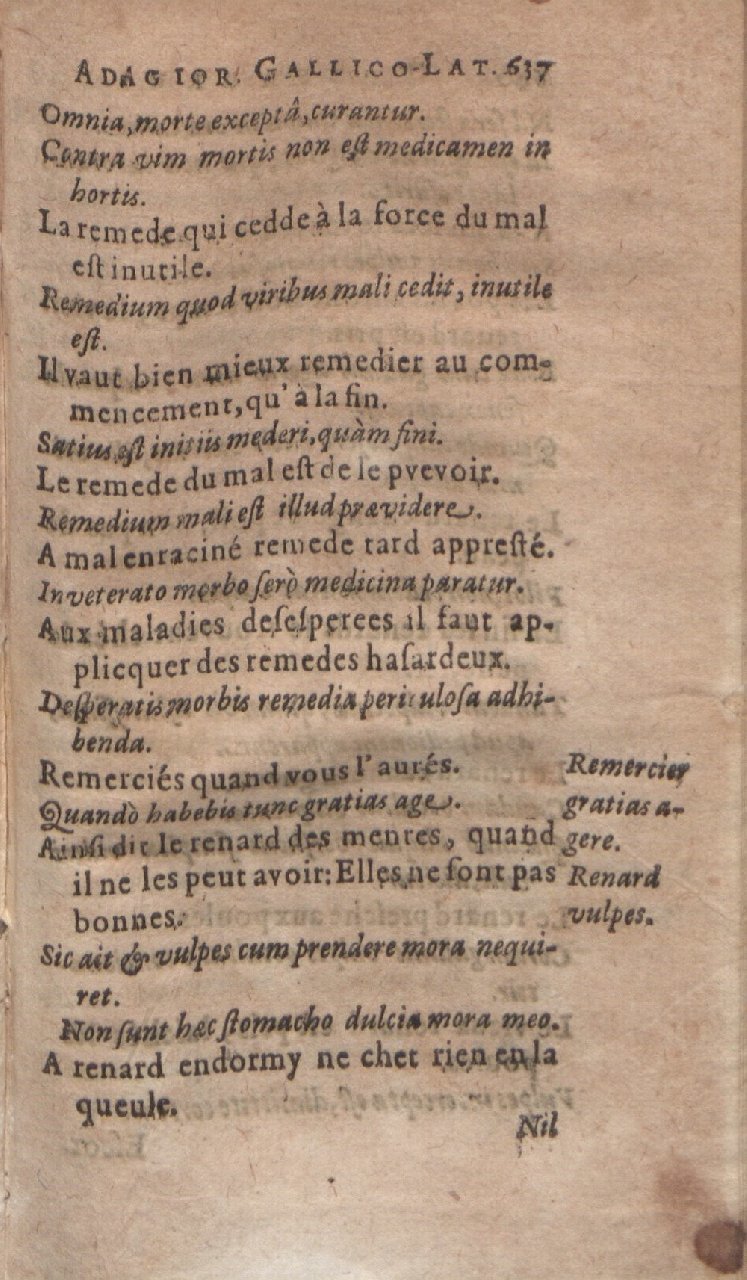 ADAGIOR. GALLICO-LAT. 637
Omnia, morte exceptâ, curantur.
Contra vim mortis non eſt medicamen in
hortis.
La remede qui cedde à la force du mal
eſt inutile.
Remedium quod viribus mali cedit, inutile
eſt.
Il vaut bien mieux remedier au com-
mencement, qu'à la fin.
Satius eſt initiis mederi, quàm fini.
Le remede du mal eſt de le pvevoir.
Remedium mali eſt illud prævidere.
A mal enraciné remede tard appreſté.
Inveterato morbo ſerò medicina paratur.
Aux maladies deſeſperees il faut ap-
plicquer des remedes haſardeux.
Deſperatis morbis remedia periculoſa adhi-
benda.
Remerciés quand vous l'aurés.
Remercier
Quandò habebis tunc gratias age.
gratias a-
Ainſi dit le renard des meures, quand
gere.
il ne les peut avoir: Elles ne ſont pas
Renard
bonnes.
vulpes.
Sic ait & vulpes cum prendere mora nequi-
ret.
Non ſunt hæc ſtomacho dulcia mora meo.
A renard endormy ne chet rien en la
queule.
Nil